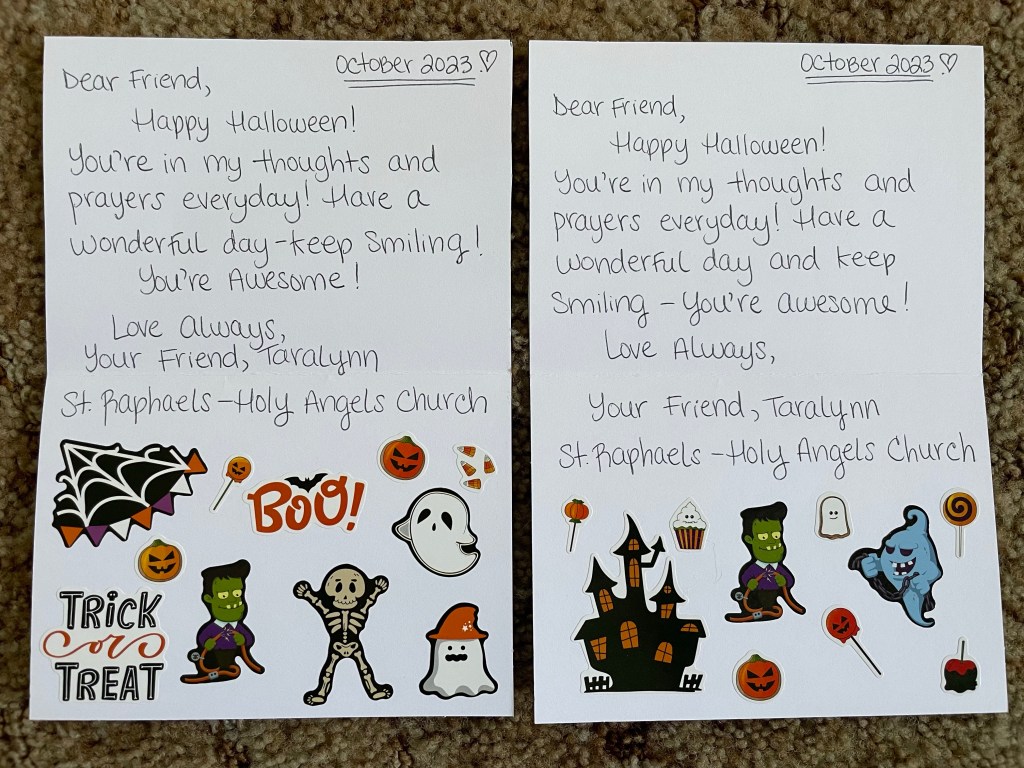 October 2023 ♡
Dear Friend,
Happy Halloween!
You're in my thoughts and
prayers everyday! Have a
wonderful day-keep smiling!
You're Awesome!
Love Always,
Your Friend, Taralynn
St. Raphaels-Holy Angels Church
BOO!
TRICK
or
TREAT
October 2023 ♡
Dear Friend,
Happy Halloween!
You're in my thoughts and
prayers everyday! Have a
wonderful day and keep
smiling - You're awesome!
Love Always,
Your Friend, Taralynn
St. Raphaels-Holy Angels Church